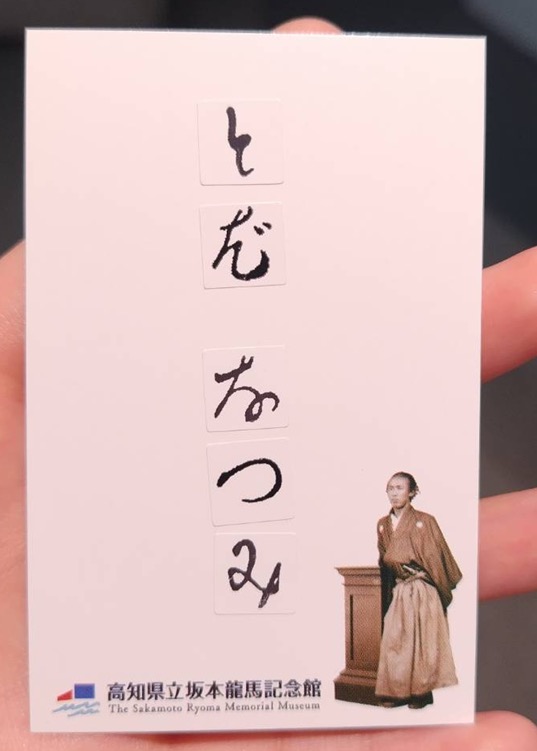 とだ なつみ
高知県立坂本龍馬記念館
The Sakamoto Ryoma Memorial Museum